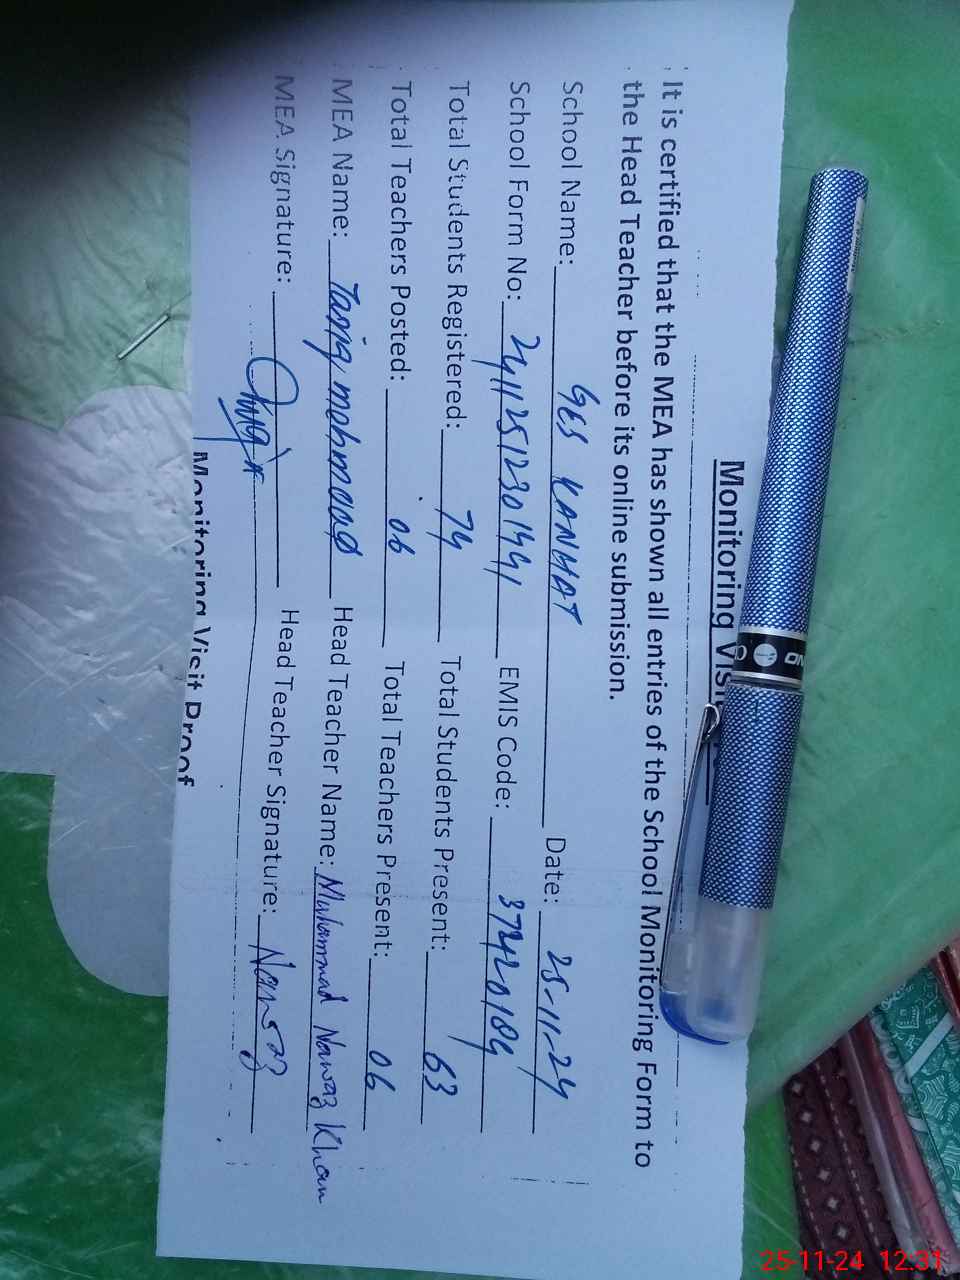 Monitoring Vis
It is certified that the MEA has shown all entries of the School Monitoring Form to
the Head Teacher before its online submission.
School Name: GES KANHAT Date: 25-11-24
School Form No: 24112512301441 EMIS Code: 37420184
Total Students Registered: 74 Total Students Present: 63
Total Teachers Posted: 06 Total Teachers Present: 06
MEA Name: Tariq mahmood Head Teacher Name: Muhammad Nawaz Khan
MEA Signature: Head Teacher Signature: Nawaz
Monitoring Visit Proof
25-11-24 12:31